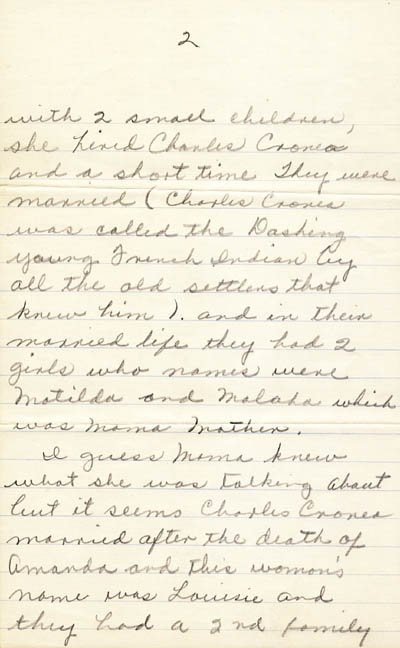 2
with 2 small children,
she hired Charles Cronea
and a short time They were
married ( Charles Cronea
was called the Dashing
young French Indian by
all the old settlers that
knew him ). and in their
married life they had 2
girls who names were
Matilda and Malada which
was Mama Mother.
I guess Mama knew
what she was talking about
but it seems Charles Cronea
married after the death of
Amanda and this woman's
name was Louisie and
they had a 2nd family